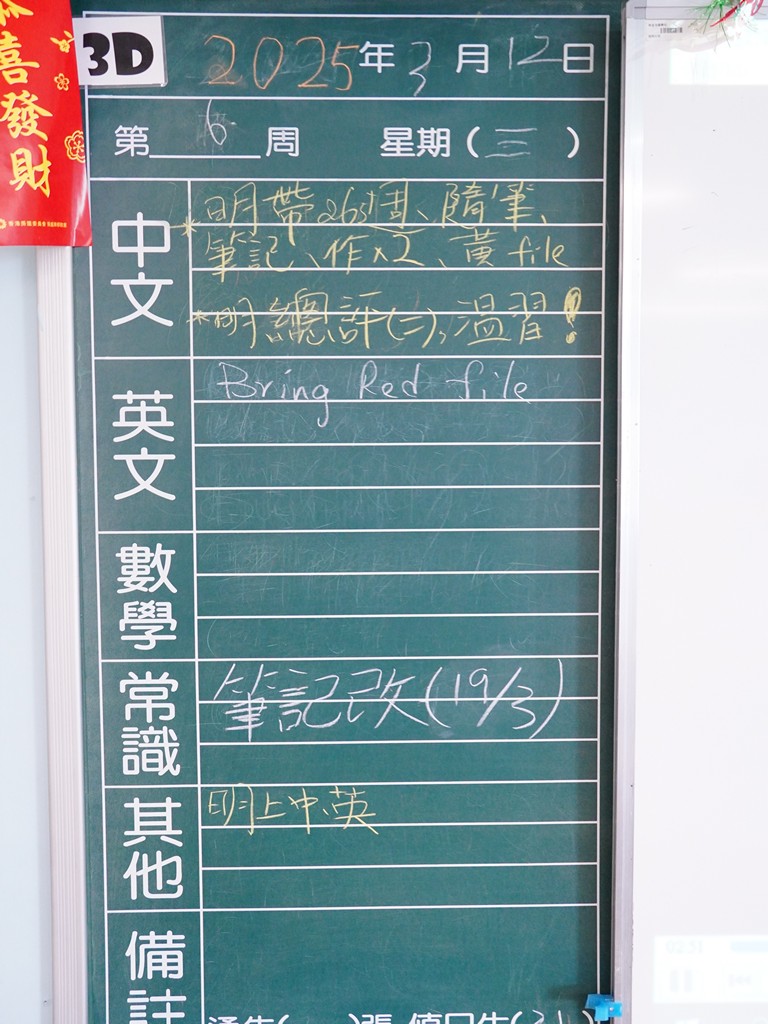 恭喜發財
3D
2025年3月12日
第 6 周 星期(三)
中文
*明帶263週、隨筆、
筆記、作x2、黃file
*明總評(二),溫習!
英文
Bring Red file
數學
常識
筆記改(19/3)
其他
明上中、英
備註
02:51